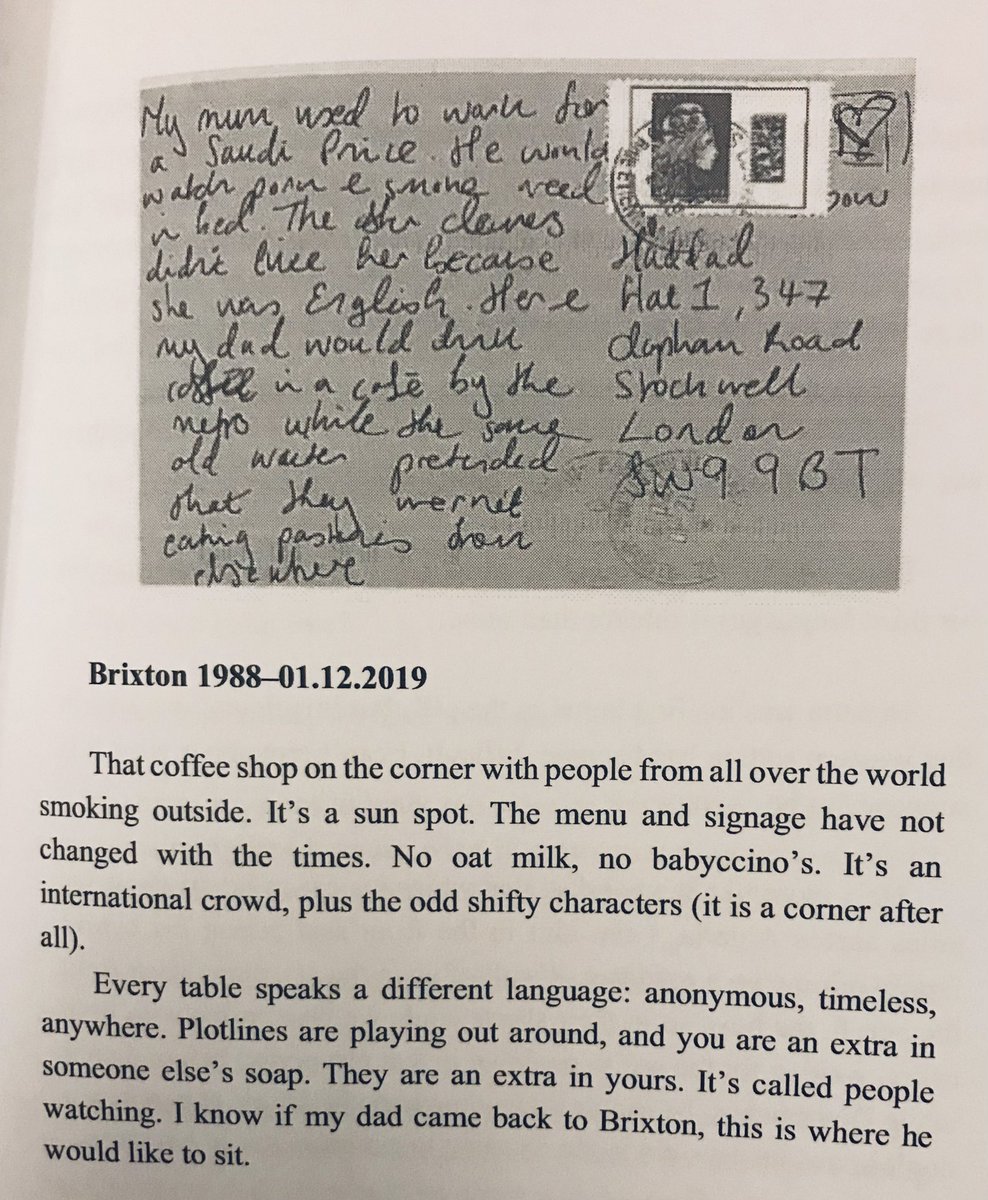 My mum used to work for
a Saudi Prince. He would
watch porn & smoke weed
in bed. The other cleaners
didn't like her because
she was English. Here
my dad would drink
coffee in a café by the
metro while the same
old waiter pretended
that they weren't
eating pastries from
elsewhere
Haddad
Flat 1, 347
Clapham Road
Stockwell
London
SW9 9BT
Brixton 1988–01.12.2019
That coffee shop on the corner with people from all over the world
smoking outside. It's a sun spot. The menu and signage have not
changed with the times. No oat milk, no babyccino's. It's an
international crowd, plus the odd shifty characters (it is a corner after
all).
Every table speaks a different language: anonymous, timeless,
anywhere. Plotlines are playing out around, and you are an extra in
someone else's soap. They are an extra in yours. It's called people
watching. I know if my dad came back to Brixton, this is where he
would like to sit.